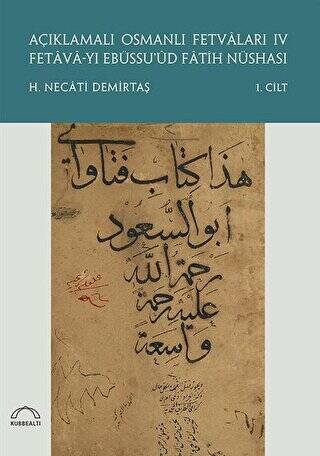 AÇIKLAMALI OSMANLI FETVÂLARI IV
FETÂVÂ-YI EBÜSSU'ÛD FÂTİH NÜSHASI
H. NECÂTİ DEMİRTAŞ
1. CİLT
هذا كتاب فتاوي
ابو السعود
رحمة الله
عليه رحمة
واسعة
KUBBEALTI